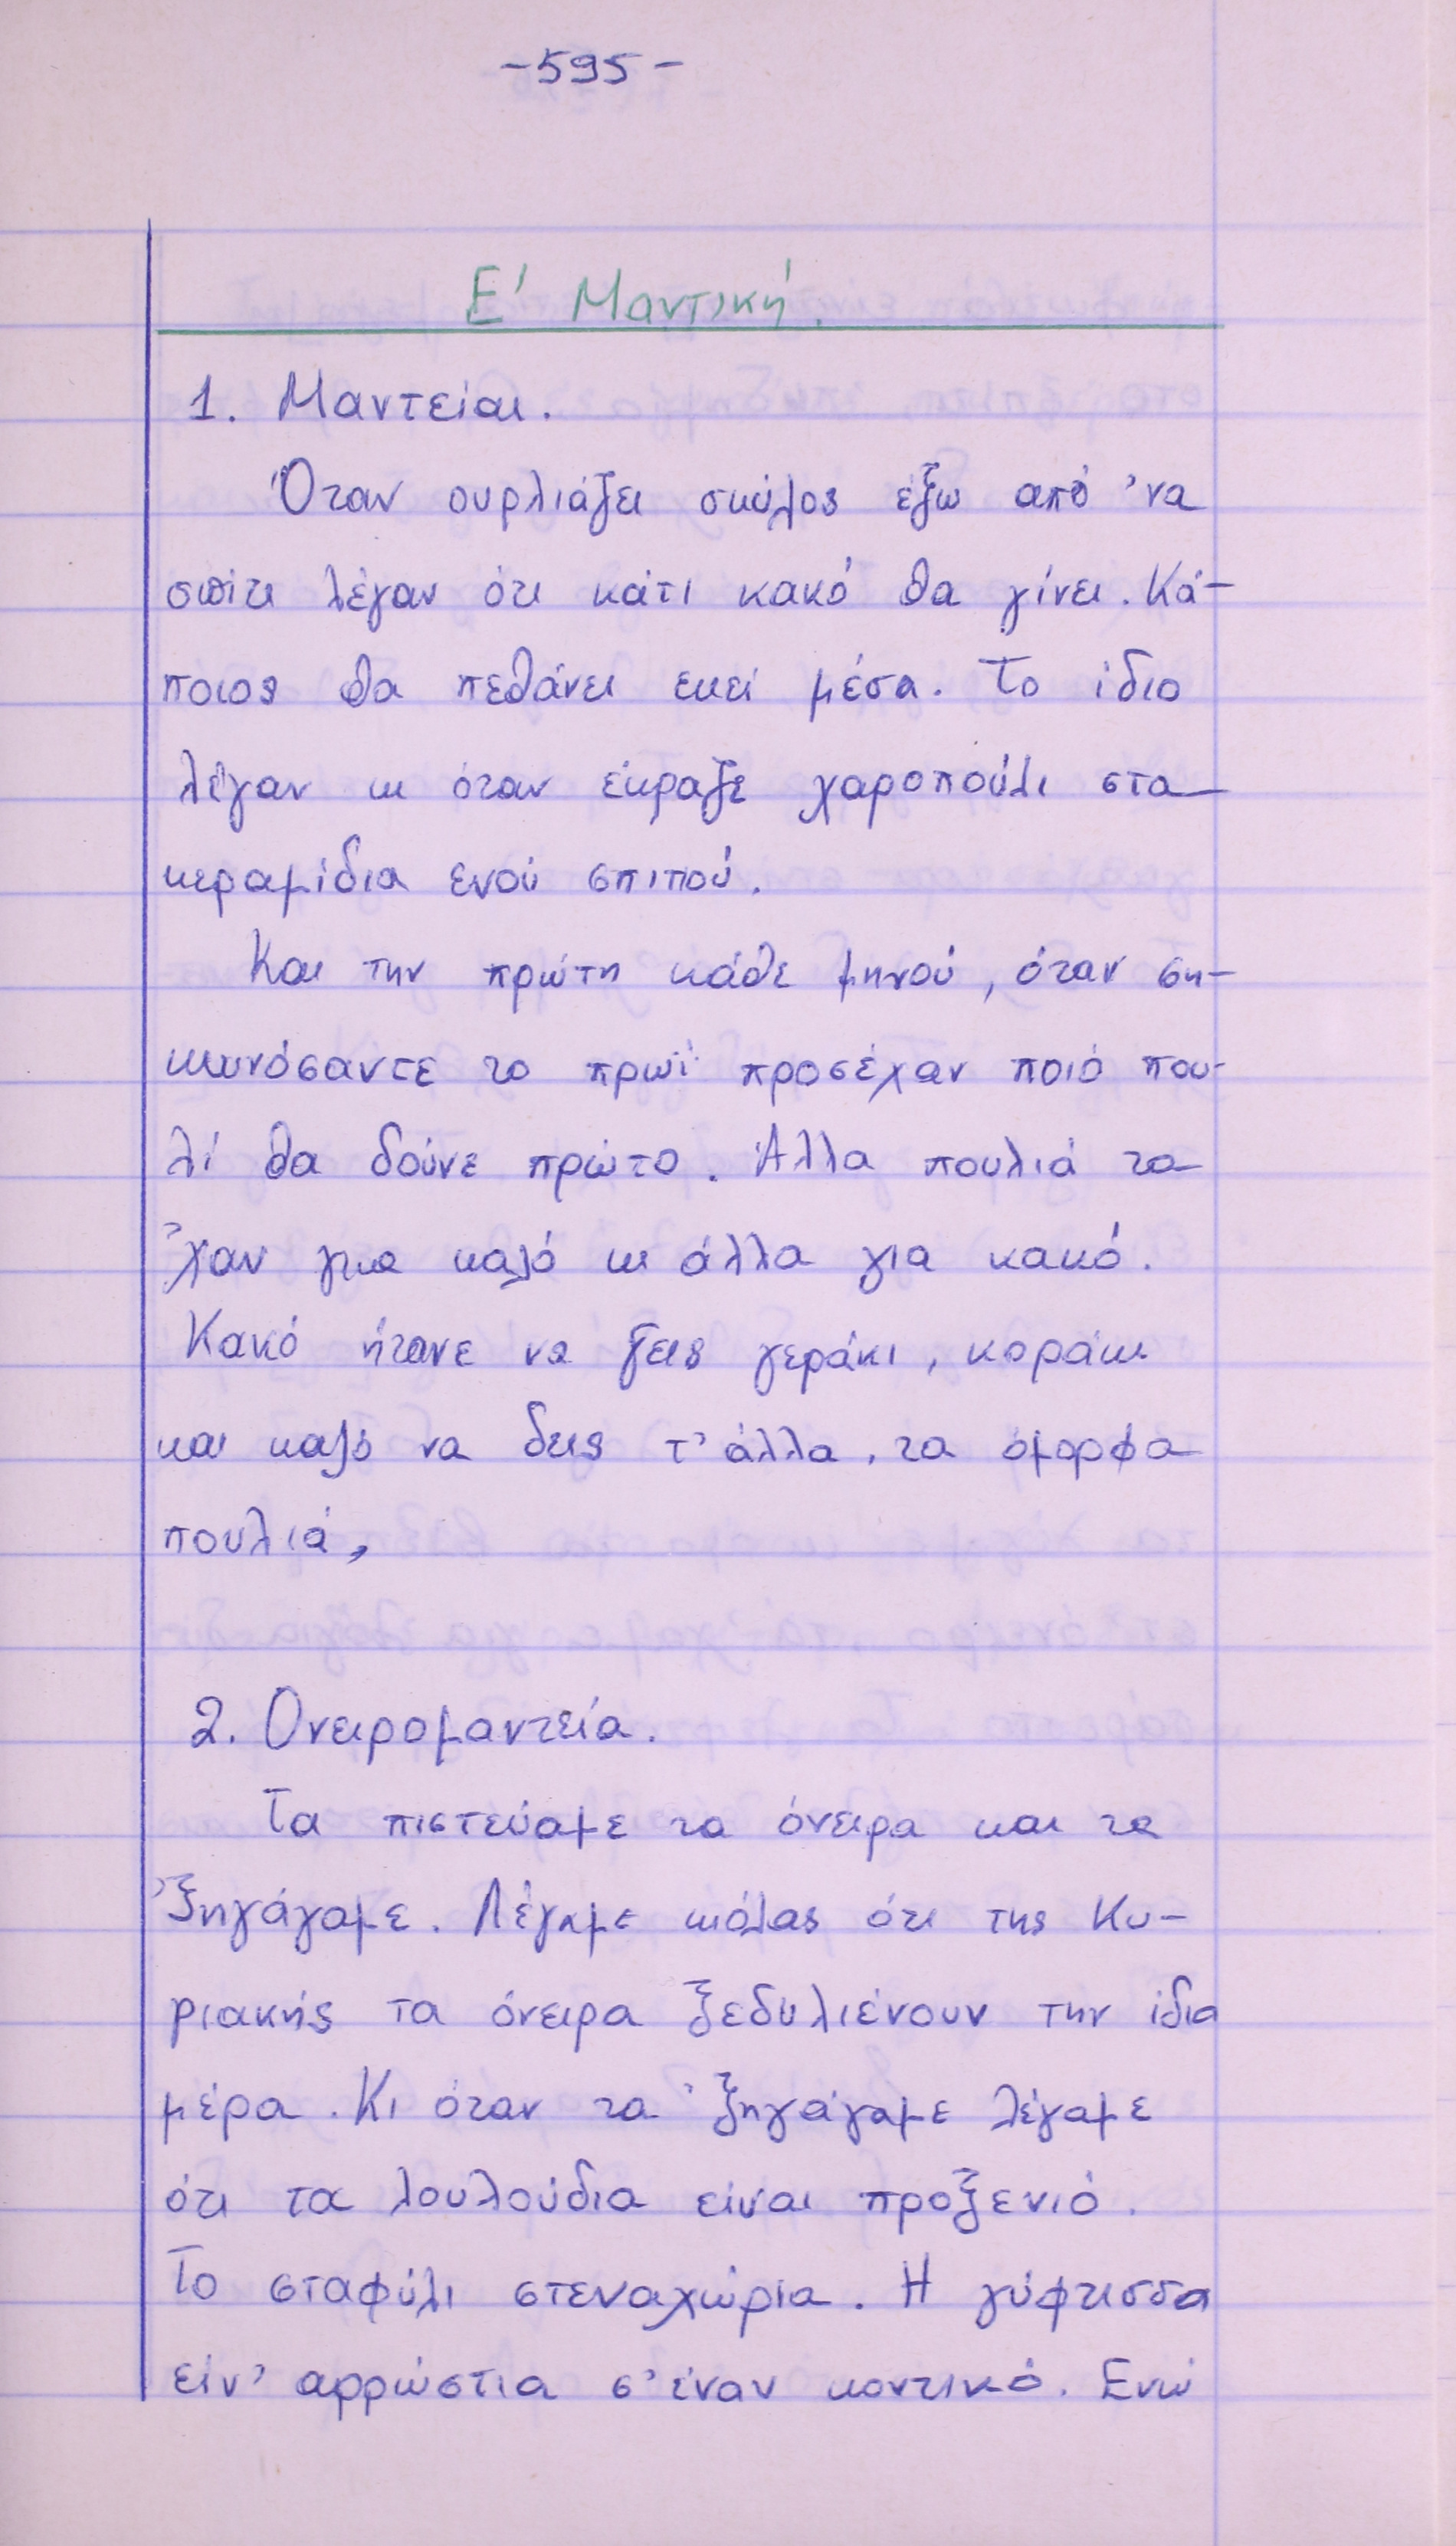 -595-
Ε' Μαντική.
1. Μαντείαι.
Όταν ουρλιάζει σκύλος έξω από 'να
σπίτι λέγαν ότι κάτι κακό θα γίνει. Κά-
ποιος θα πεθάνει εκεί μέσα. Το ίδιο
λέγαν κι όταν έκραζε χαροπούλι στα
κεραμίδια ενού σπιτιού.
Και την πρώτη κάθε μηνού, όταν ση-
κωνόσαντε το πρωί προσέχαν ποιό που-
λί θα δούνε πρώτο. Άλλα πουλιά τα
'χαν για καλό κι άλλα για κακό.
Κακό ήτανε να δεις γεράκι, κοράκι
και καλό να δεις τ' άλλα, τα όμορφα
πουλιά,
2. Ονειρομαντεία.
Τα πιστεύαμε τα όνειρα και τα
'ξηγάγαμε. Λέγαμε κιόλας ότι της Κυ-
ριακής τα όνειρα ξεδυλιένουν την ίδια
μέρα. Κι όταν τα 'ξηγάγαμε λέγαμε
ότι τα λουλούδια είναι προξενιό.
Το σταφύλι στεναχώρια. Η γύφτισσα
είν' αρρώστια σ' έναν κοντικό. Ενώ